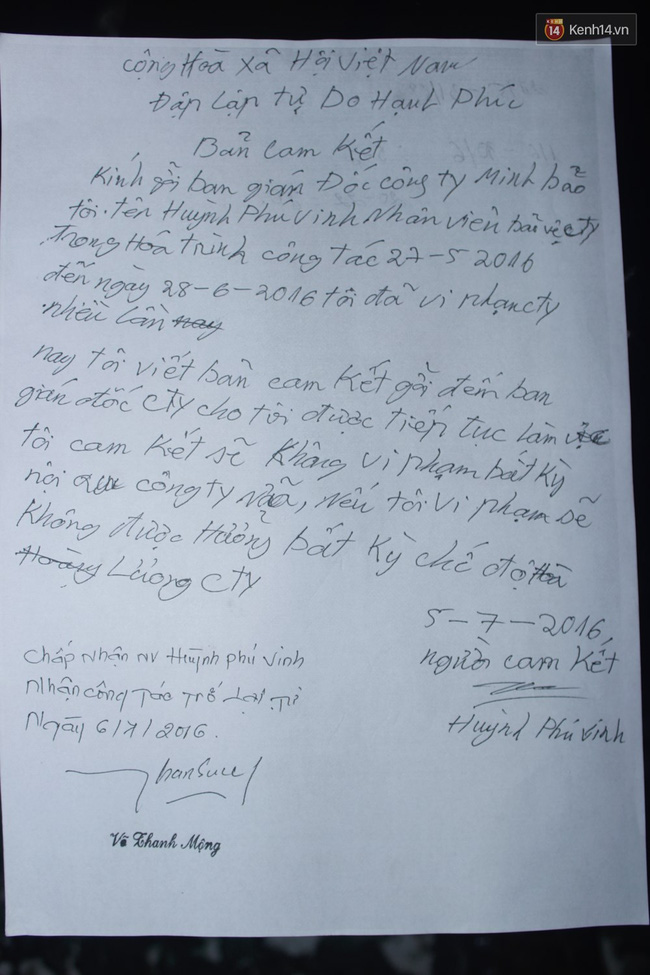 14 Kenh14.vn
Cộng Hoà Xã Hội Việt Nam
Đập Lập Tự Do Hạnh Phíc
Bản Cam Kết
Kính gỡi ban gián Đốc công ty Minh bảo
tôi tên Huỳnh Phú Vinh Nhân viên bảo vệ cty
trong Hoá trình công tác 27-5 2016
đến ngày 28-6-2016 tôi đã vi phạm cty
nhiều lần nay
nay tôi viết bản cam kết gỡi đến ban
gián đốc cty cho tôi được tiếp tục làm
tôi cam kết sẽ Không vi phạm bất kỳ
nội công ty nữa, nếu tôi vi phạm sẽ
Không được Hưởng bất kỳ chế độ
Lương cty
5-7-2016
người cam kết
Huỳnh Phú Vinh
Chấp Nhận NV Huỳnh Phú Vinh
Nhận công tác trở lại từ
Ngày 6/7/2016.
Võ Thanh Mộng